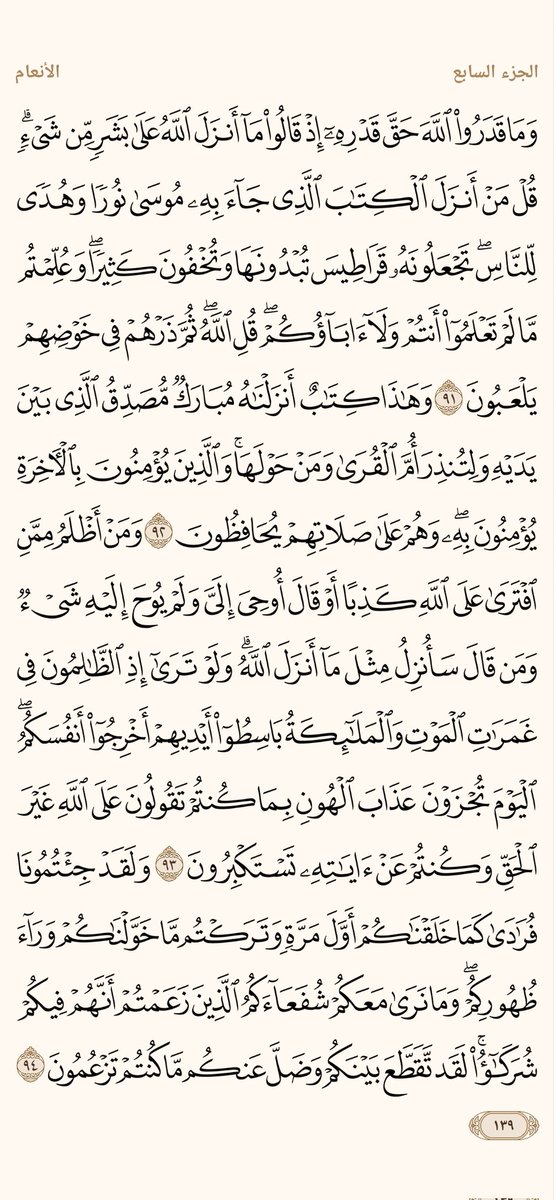 الجزء السابع
الأنعام
وَمَا قَدَرُوا۟ ٱللَّهَ حَقَّ قَدْرِهِۦٓ إِذْ قَالُوا۟ مَآ أَنزَلَ ٱللَّهُ عَلَىٰ بَشَرٍ مِّن شَىْءٍۗ
قُلْ مَنْ أَنزَلَ ٱلْكِتَـٰبَ ٱلَّذِى جَآءَ بِهِۦ مُوسَىٰ نُورًا وَهُدًى
لِّلنَّاسِۖ تَجْعَلُونَهُۥ قَرَاطِيسَ تُبْدُونَهَا وَتُخْفُونَ كَثِيرًاۖ وَعُلِّمْتُم
مَّا لَمْ تَعْلَمُوٓا۟ أَنتُمْ وَلَآ ءَابَآؤُكُمْۖ قُلِ ٱللَّهُۖ ثُمَّ ذَرْهُمْ فِى خَوْضِهِمْ
يَلْعَبُونَ ٩١ وَهَـٰذَا كِتَـٰبٌ أَنزَلْنَـٰهُ مُبَارَكٌ مُّصَدِّقُ ٱلَّذِى بَيْنَ
يَدَيْهِ وَلِتُنذِرَ أُمَّ ٱلْقُرَىٰ وَمَنْ حَوْلَهَاۚ وَٱلَّذِينَ يُؤْمِنُونَ بِٱلْـَٔاخِرَةِ
يُؤْمِنُونَ بِهِۦۖ وَهُمْ عَلَىٰ صَلَاتِهِمْ يُحَافِظُونَ ٩٢ وَمَنْ أَظْلَمُ مِمَّنِ
ٱفْتَرَىٰ عَلَى ٱللَّهِ كَذِبًا أَوْ قَالَ أُوحِىَ إِلَىَّ وَلَمْ يُوحَ إِلَيْهِ شَىْءٌ
وَمَن قَالَ سَأُنزِلُ مِثْلَ مَآ أَنزَلَ ٱللَّهُۗ وَلَوْ تَرَىٰٓ إِذِ ٱلظَّـٰلِمُونَ فِى
غَمَرَٰتِ ٱلْمَوْتِ وَٱلْمَلَـٰٓئِكَةُ بَاسِطُوٓا۟ أَيْدِيهِمْ أَخْرِجُوٓا۟ أَنفُسَكُمُۖ
ٱلْيَوْمَ تُجْزَوْنَ عَذَابَ ٱلْهُونِ بِمَا كُنتُمْ تَقُولُونَ عَلَى ٱللَّهِ غَيْرَ
ٱلْحَقِّ وَكُنتُمْ عَنْ ءَايَـٰتِهِۦ تَسْتَكْبِرُونَ ٩٣ وَلَقَدْ جِئْتُمُونَا
فُرَٰدَىٰ كَمَا خَلَقْنَـٰكُمْ أَوَّلَ مَرَّةٍ وَتَرَكْتُم مَّا خَوَّلْنَـٰكُمْ وَرَآءَ
ظُهُورِكُمْۖ وَمَا نَرَىٰ مَعَكُمْ شُفَعَآءَكُمُ ٱلَّذِينَ زَعَمْتُمْ أَنَّهُمْ فِيكُمْ
شُرَكَـٰٓؤُا۟ۚ لَقَد تَّقَطَّعَ بَيْنَكُمْ وَضَلَّ عَنكُم مَّا كُنتُمْ تَزْعُمُونَ ٩٤
١٣٩